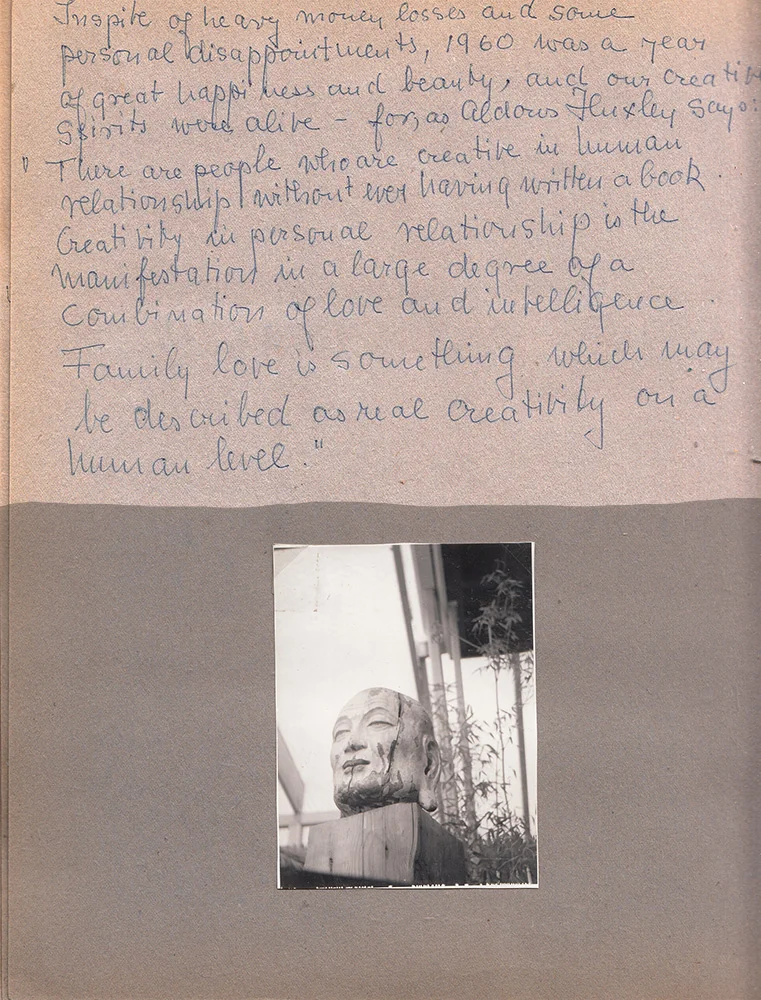 Inspite of heavy money losses and some
personal disappointments, 1960 was a year
of great happiness and beauty, and our creative
Spirits were alive - for, as Aldous Huxley says:
"There are people who are creative in human
relationship without ever having written a book.
Creativity in personal relationship is the
manifestation in a large degree of a
Combination of love and intelligence.
Family love is something which may
be described as real creativity on a
human level."